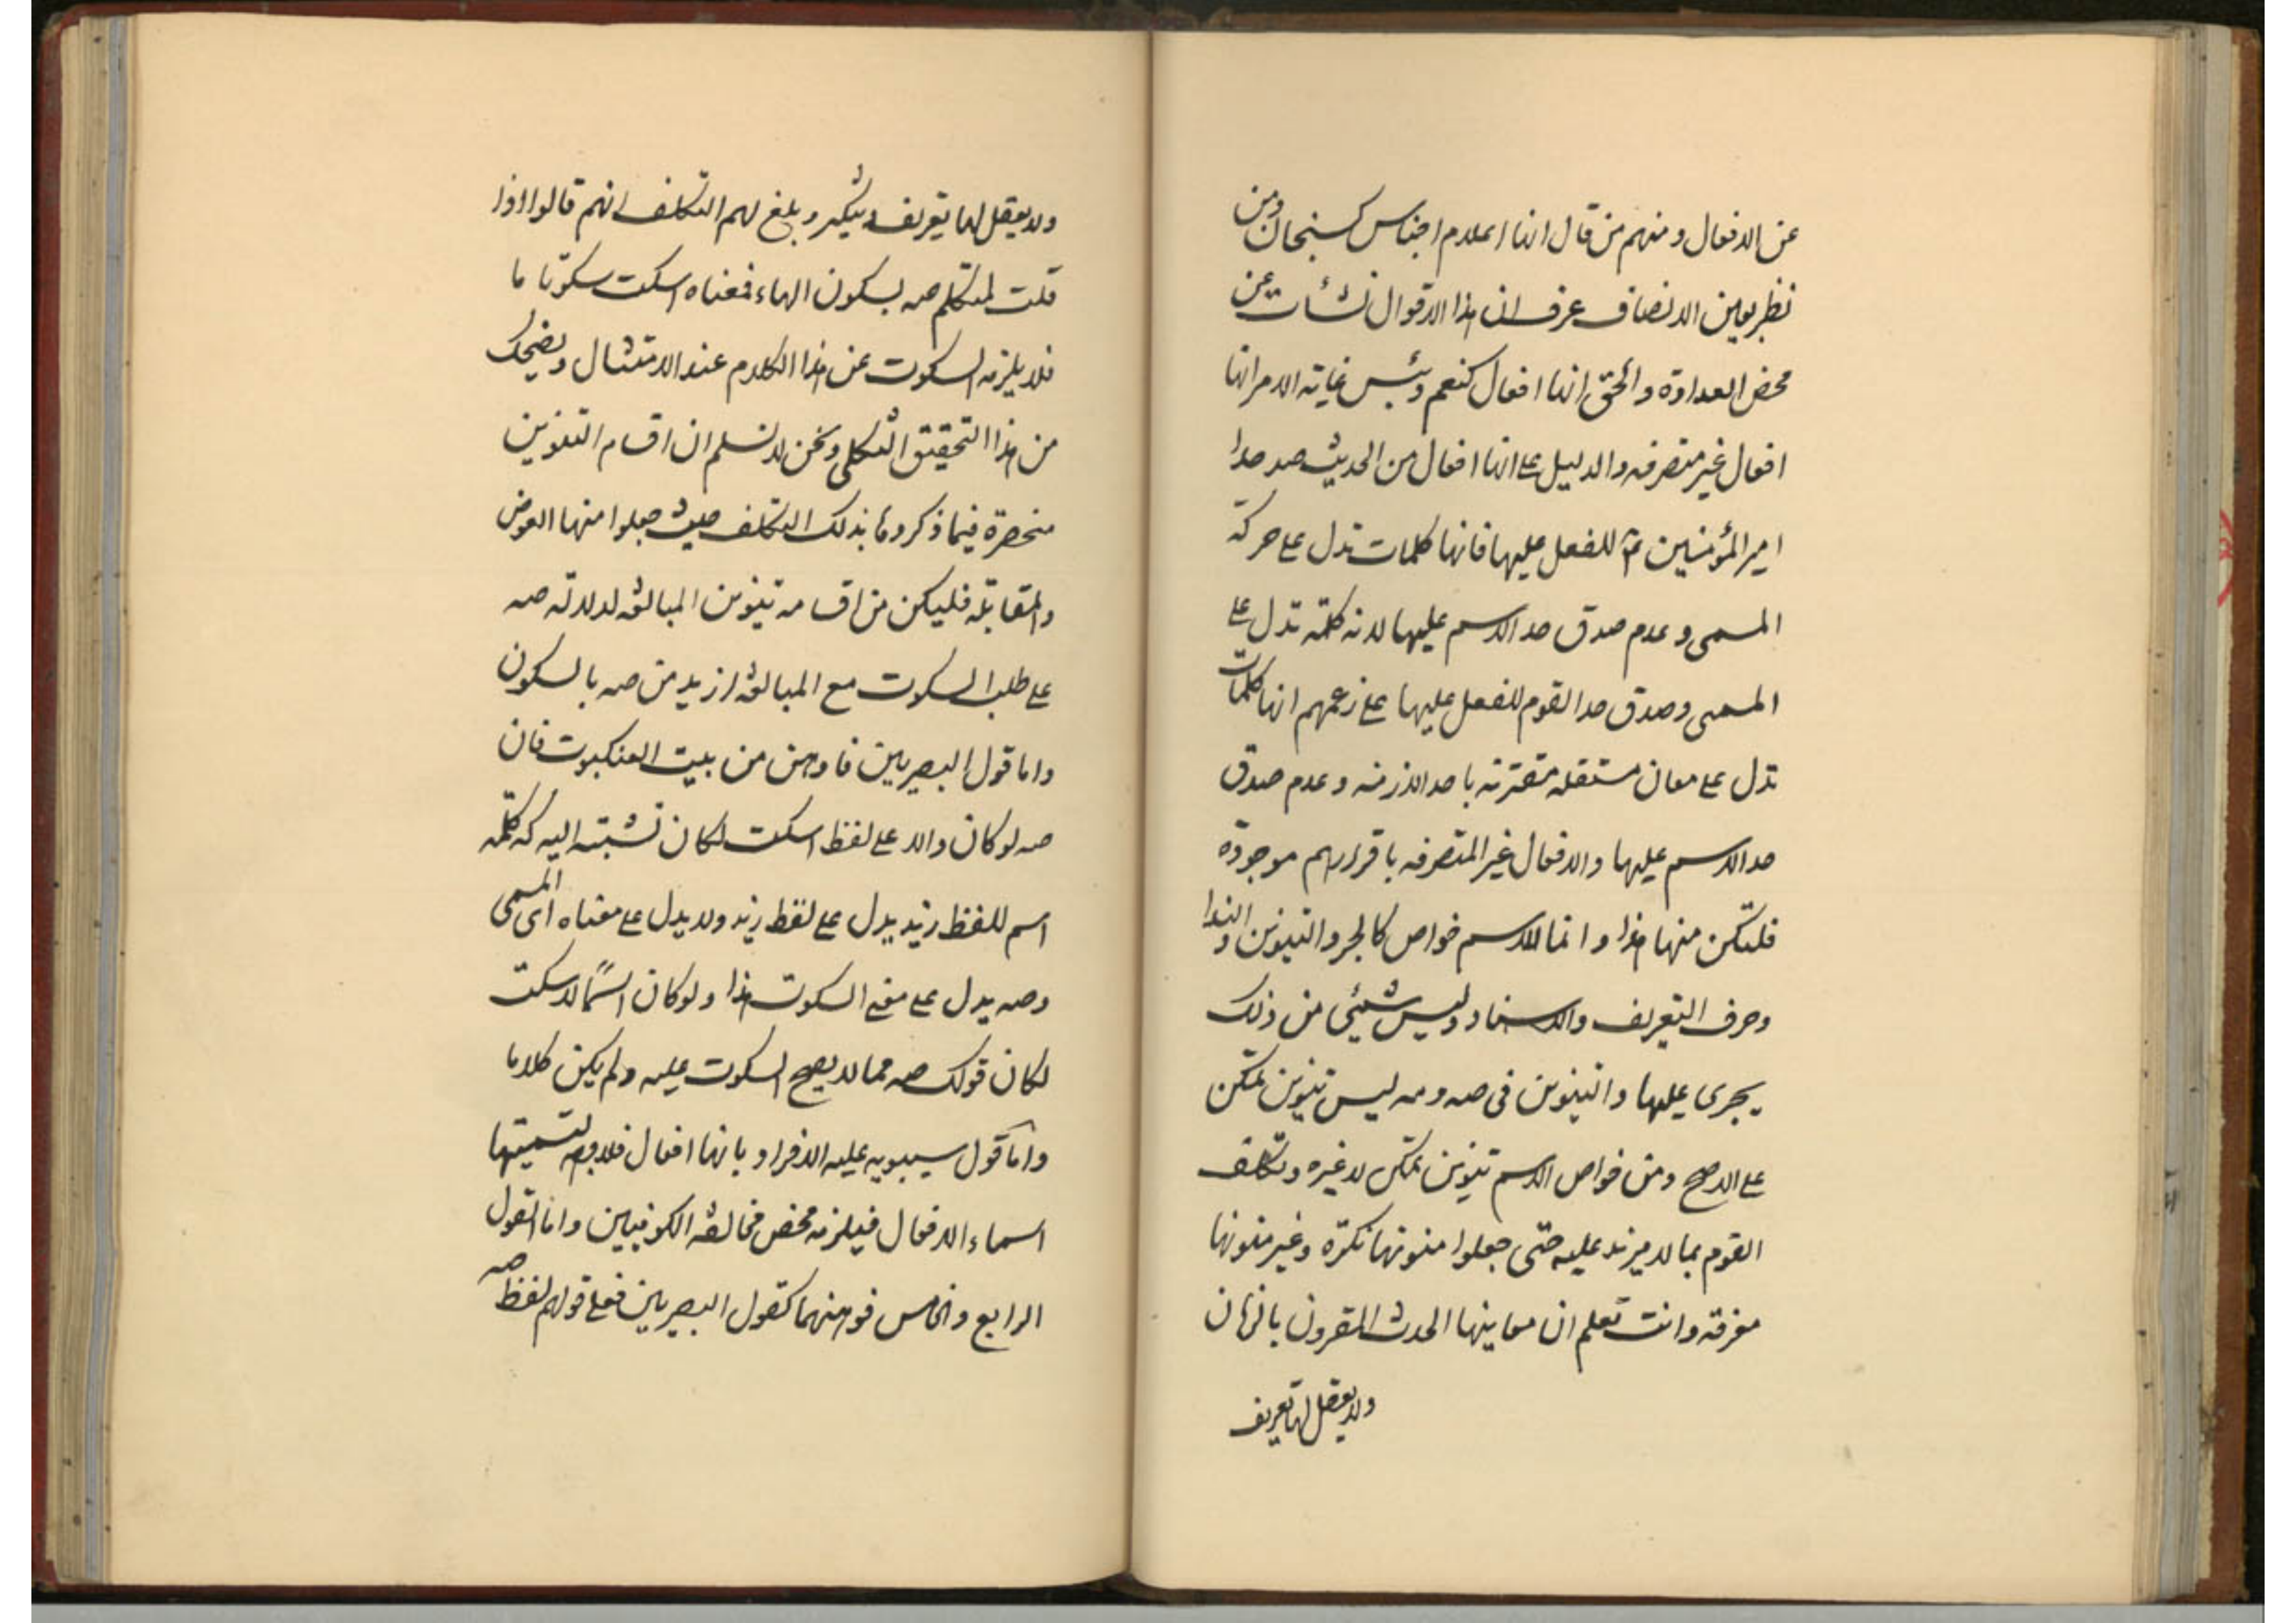 عن الافعال و منهم من قال انها اعلام اجناس كسبحان ومن
نظر بعين الانصاف عرف ان هذا الاقوال نشأت عن
محض العداوة والحق انها افعال كنعم وبئس غاية الامر انها
افعال غير متصرفه والدليل على انها افعال من الحديث صدق حد
امير المؤمنين ع للفعل عليها فانها كلمات تدل على حركة
المسمى و عدم صدق حد الاسم عليها لانه كلمة تدل على
المسمى و صدق حد القوم للفعل عليها على زعمهم انها كلمات
تدل على معان مستقله مقترنه باحد الازمنه و عدم صدق
حد الاسم عليها والافعال غير المتصرفه باقرارهم موجودة
فلتكن منها هذا و انما للاسم خواص كالجر والتنوين والندا
وحرف التعريف والاسناد وليس شيئى من ذلك
يجرى عليها والتنوين فى صه ومه ليس تنوين تمكن
على الاصح ومن خواص الاسم تنوين تمكن لا غيره وتكلف
القوم بما لا مزيد عليه حتى جعلوا منونها نكرة وغير منونها
معرفه وانت تعلم ان معاينها الحدث المقرون بالزمان
ولا يعقل لها تعريف
ولا يعقل لها تعريف وتنكير و بلغ لهم التكلف انهم قالوا اذا
قلت لمتكلم صه بسكون الهاء فمعناه اسكت سكوتا ما
فلا يلزمه السكوت عن هذا الكلام عند الامتثال ويضحك
من هذا التحقيق الثكلى ونحن لا نسلم ان اقسام التنوين
منحصرة فيما ذكروها بذلك التكلف حيث جعلوا منها العوض
والمقابلة فليكن من اقسامه تنوين المبالغه لدلالة صه
على طلب السكوت مع المبالغه ازيد من صه بالسكون
واما قول البصريين فاوهن من بيت العنكبوت فان
صه لو كان دالا على لفظ اسكت لكان نسبته اليه كه كلمه
اسم للفظ زيد يدل على لفظ زيد ولا يدل على معناه اى المسمى
وصه يدل على معنى السكوت هذا ولو كان اسمًا لاسكت
لكان قولك صه مما لا يصح السكوت عليه ولم يكن كلاما
واما قول سيبويه عليه الافراد بانها افعال فلا وجه لتسميتها
اسماء الافعال فيلزمه محض مخالفه الكوفيين واما القول
الرابع والخامس فوهنهما كقول البصريين فعلى قولهم لفظ صه